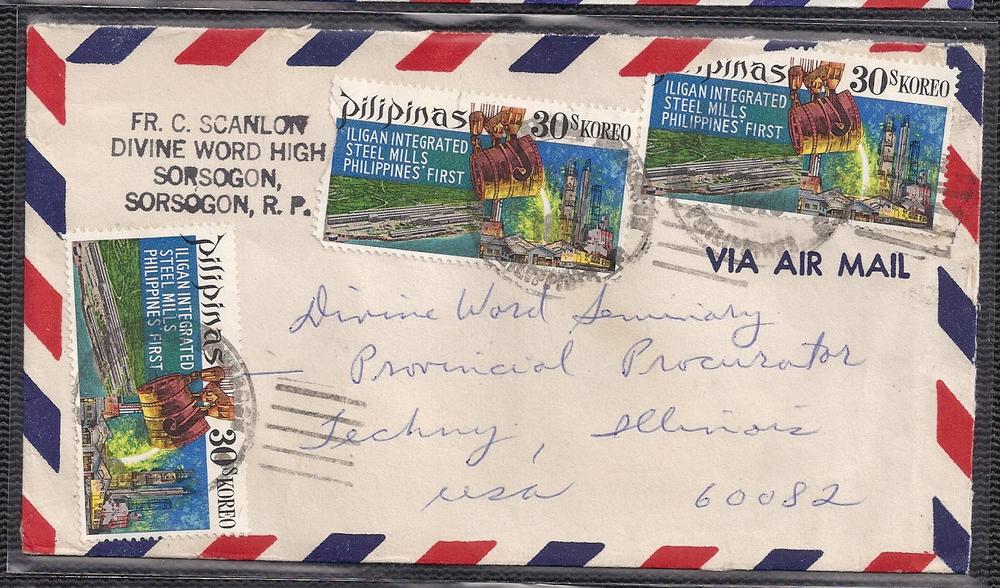 FR. C. SCANLON
DIVINE WORD HIGH
SORSOGON,
SORSOGON, R. P.
pilipinas 30s KOREO
ILIGAN INTEGRATED
STEEL MILLS
PHILIPPINES' FIRST
pilipinas 30s KOREO
ILIGAN INTEGRATED
STEEL MILLS
PHILIPPINES' FIRST
VIA AIR MAIL
pilipinas 30s KOREO
ILIGAN INTEGRATED
STEEL MILLS
PHILIPPINES' FIRST
Divine Word Seminary
Provincial Procurator
Techny, Illinois
USA 60082